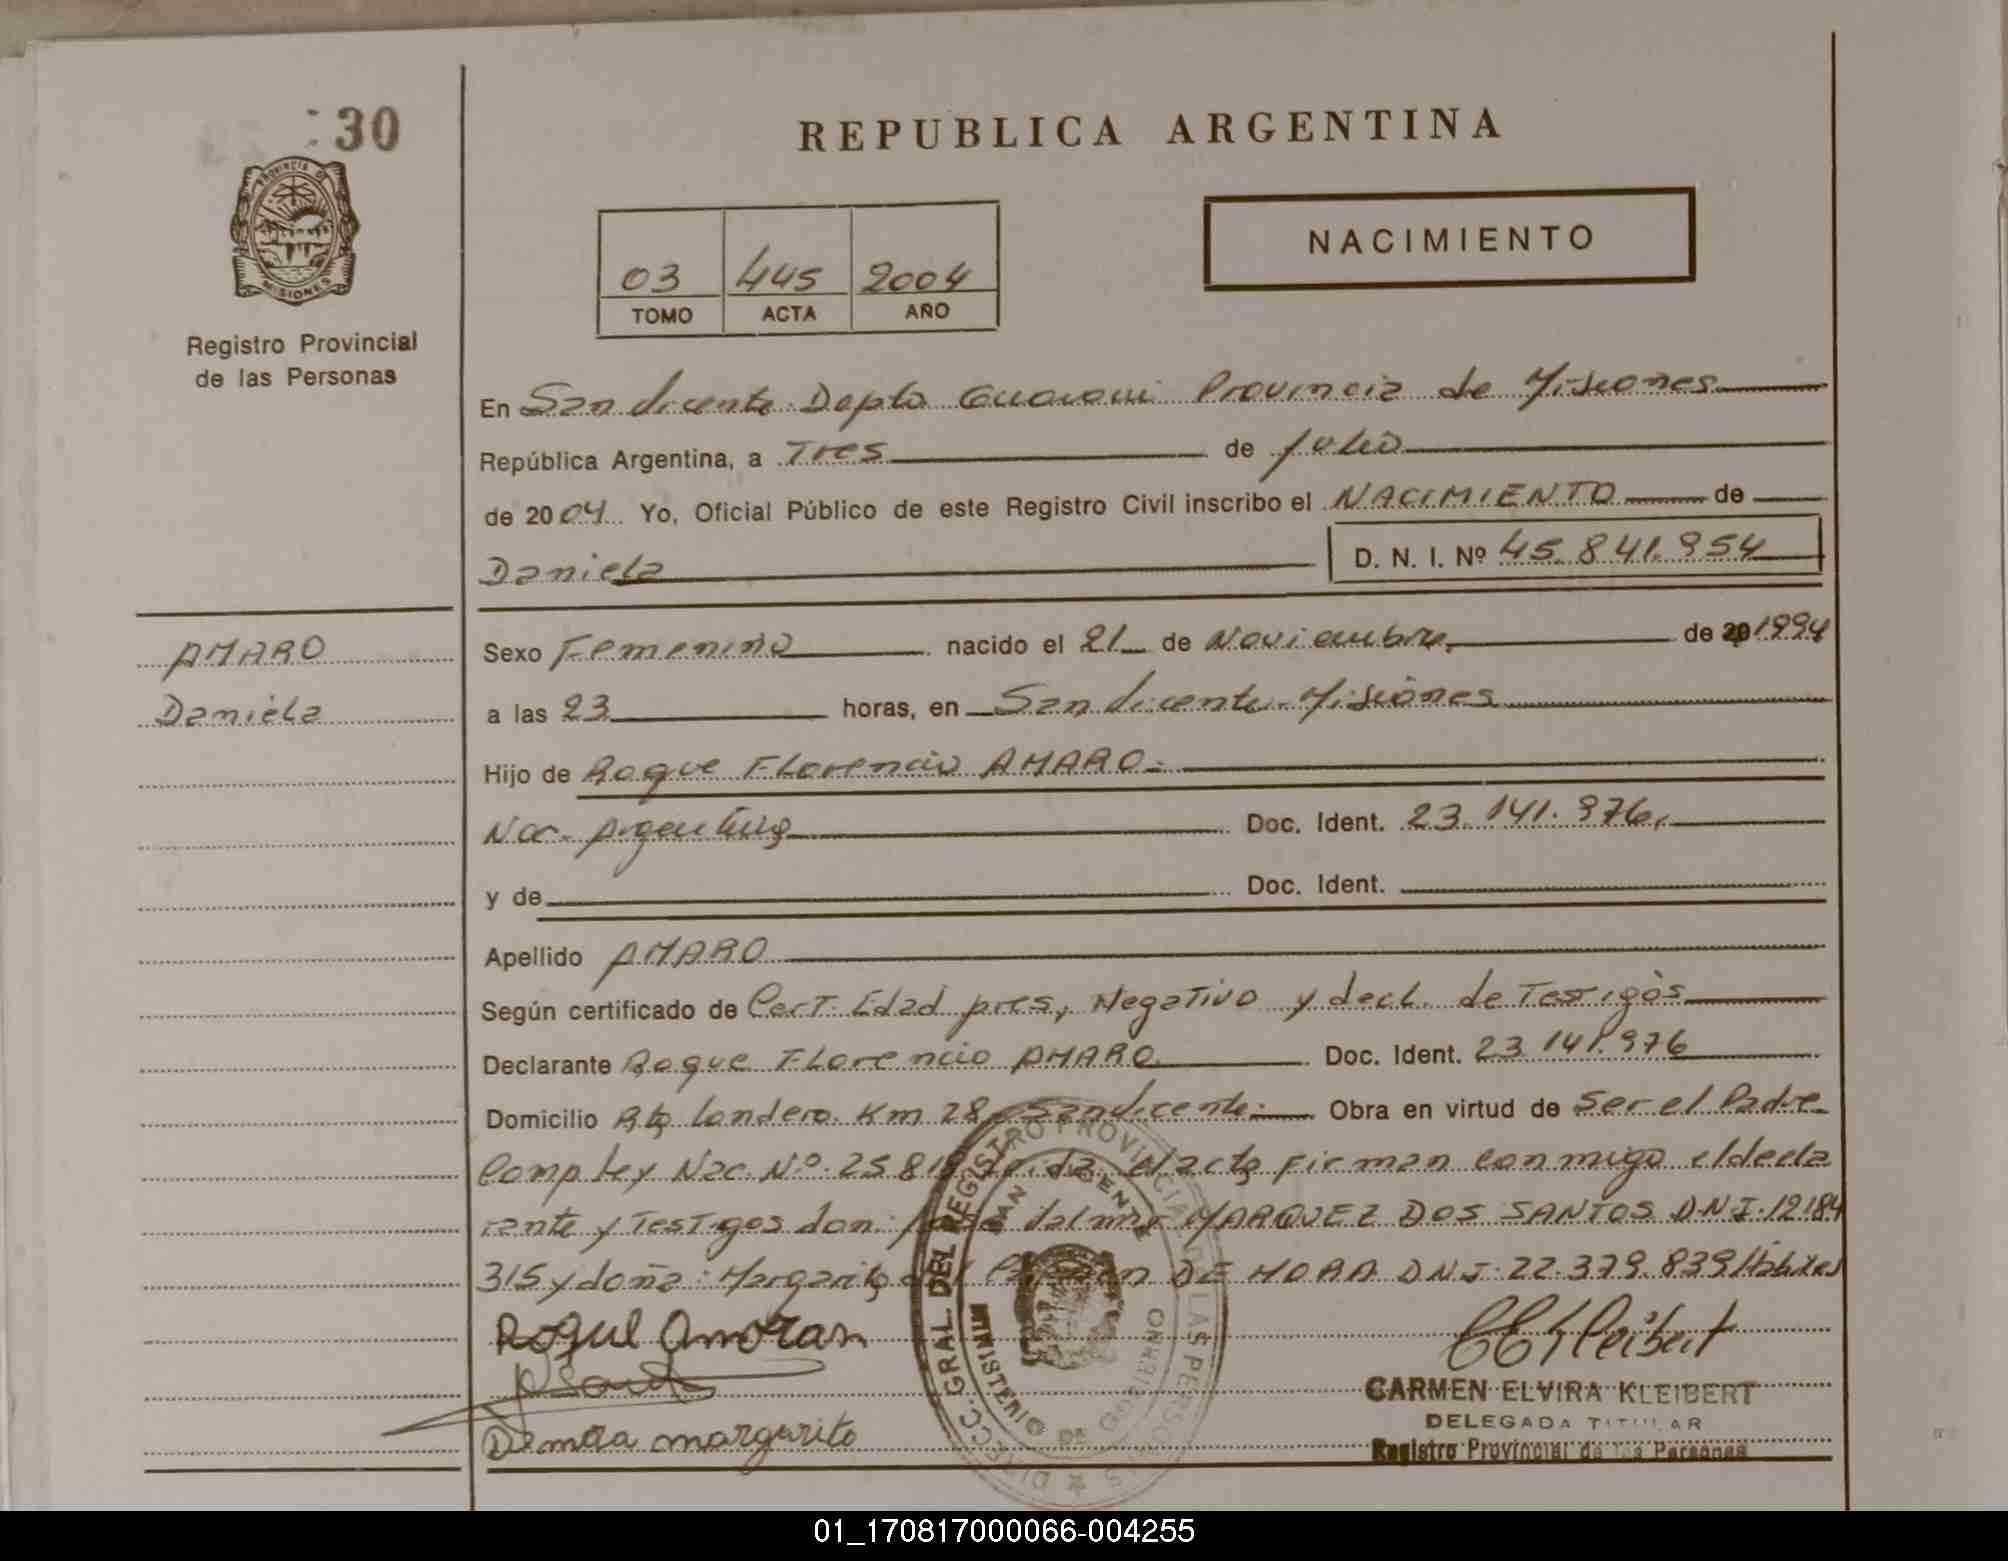 30
REPUBLICA ARGENTINA
PROVINCIA DE
MISIONES
NACIMIENTO
03 445 2004
TOMO ACTA AÑO
Registro Provincial
de las Personas
En San Vicente Depto Guarani Provincia de Misiones
República Argentina, a Tres de Julio
de 2004 Yo, Oficial Público de este Registro Civil inscribo el NACIMIENTO de
Daniela D. N. I. Nº 45.841.954
AMARO
Daniela
Sexo Femenino nacido el 21 de Noviembre de 20 1994
a las 23 horas, en San Vicente-Misiones
Hijo de Roque Florencio AMARO.
Nac. Argentina Doc. Ident. 23.141.976.
y de Doc. Ident.
Apellido AMARO
Según certificado de Cert. Edad pres, Negativo y decl. de Testigos
Declarante Roque Florencio AMARO Doc. Ident. 23.141.976
Domicilio Rta Landero. Km 28 San Vicente. Obra en virtud de Ser el Padre
Comp Ley Nac. Nº 25.819 el acta Firman conmigo el decla
rante y Testigos don: dalmir MARQUEZ DOS SANTOS D.N.I. 12.184
315 y doña: Margarita DE MORA DNI. 22.379.839 Habiles
Roque
Demora margarita
CEKleibert
CARMEN ELVIRA KLEIBERT
DELEGADA TITULAR
Registro Provincial de las Personas
DIRECC. GRAL DEL REGISTRO PROVINCIAL DE LAS PERSONAS
SAN VICENTE
MINISTERIO DE GOBIERNO
01_170817000066-004255